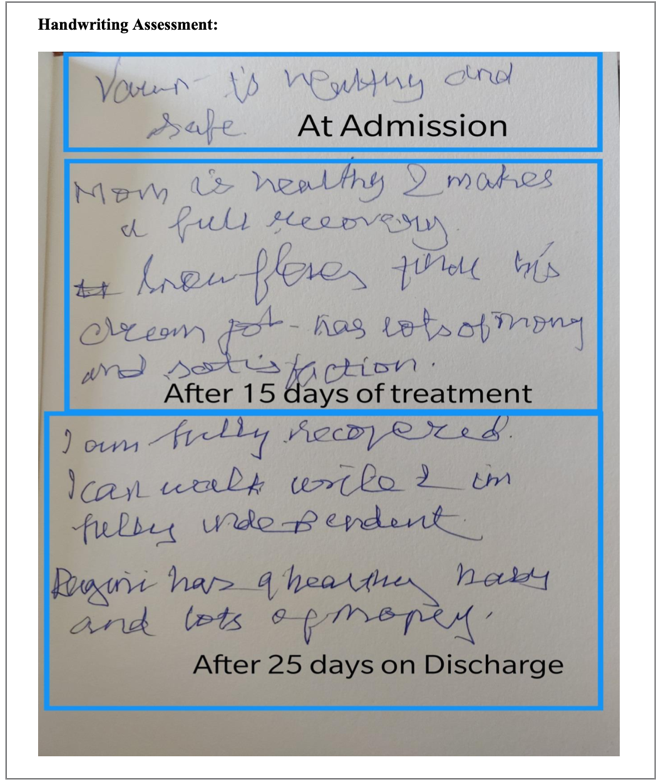 Handwriting Assessment:
Varun is healthy and
safe.
At Admission
Mom is healthy & makes
a full recovery
finds his
dream job - has lots of mony
and satisfaction.
After 15 days of treatment
I am fully recovered.
I can walk write & im
fully independent.
Ragini has a healthy baby
and lots of money.
After 25 days on Discharge